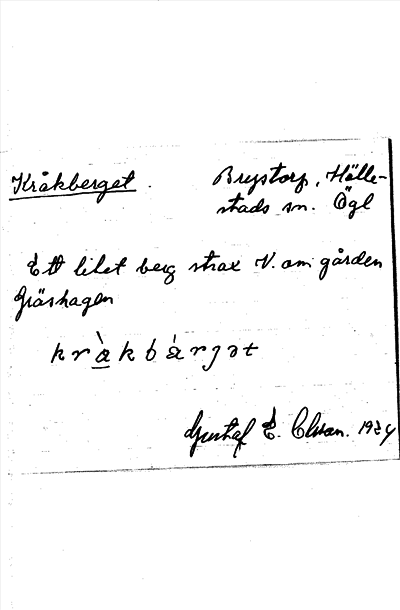 Kråkberget. Brystorp, Hälle-
stads sn. Ögl
Ett litet berg strax V. om gården
Gräshagen
kràkbárjət
Gustaf E. Olsson. 1924